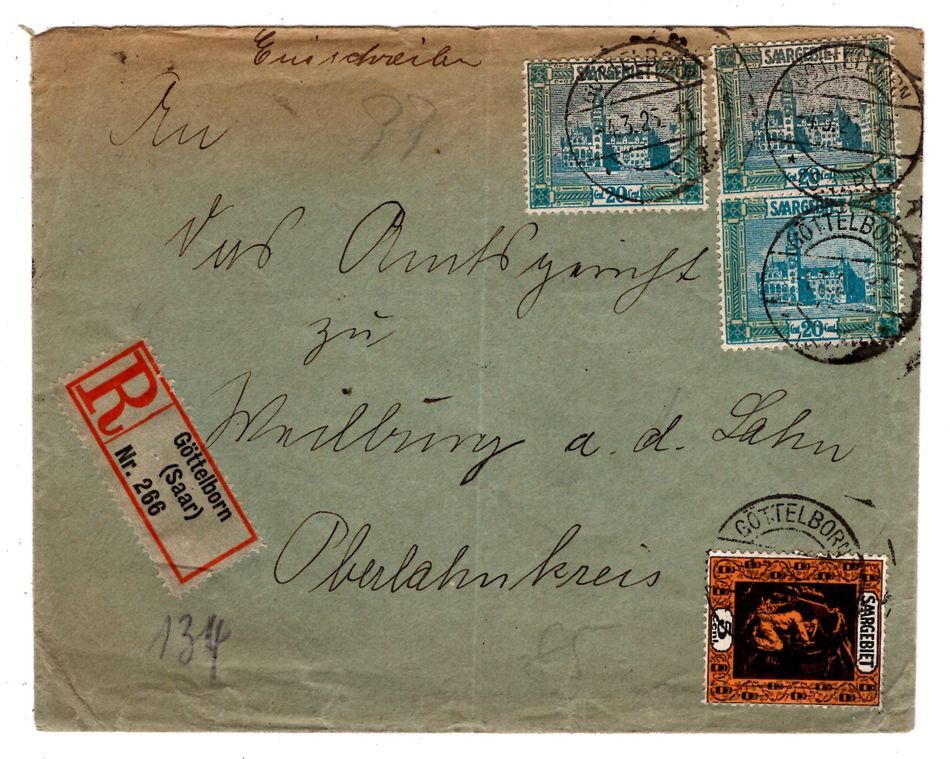 Einschreiben
An
das Amtsgericht
zu
Weilburg a. d. Lahn
Oberlahnkreis
R
Göttelborn
(Saar)
Nr. 266
134
SAARGEBIET
20
GÖTTELBORN
4.3.25
SAARGEBIET
20
GÖTTELBORN
SAARGEBIET
Cent. 20 Cent.
GÖTTELBORN
SAARGEBIET
5
Cent.